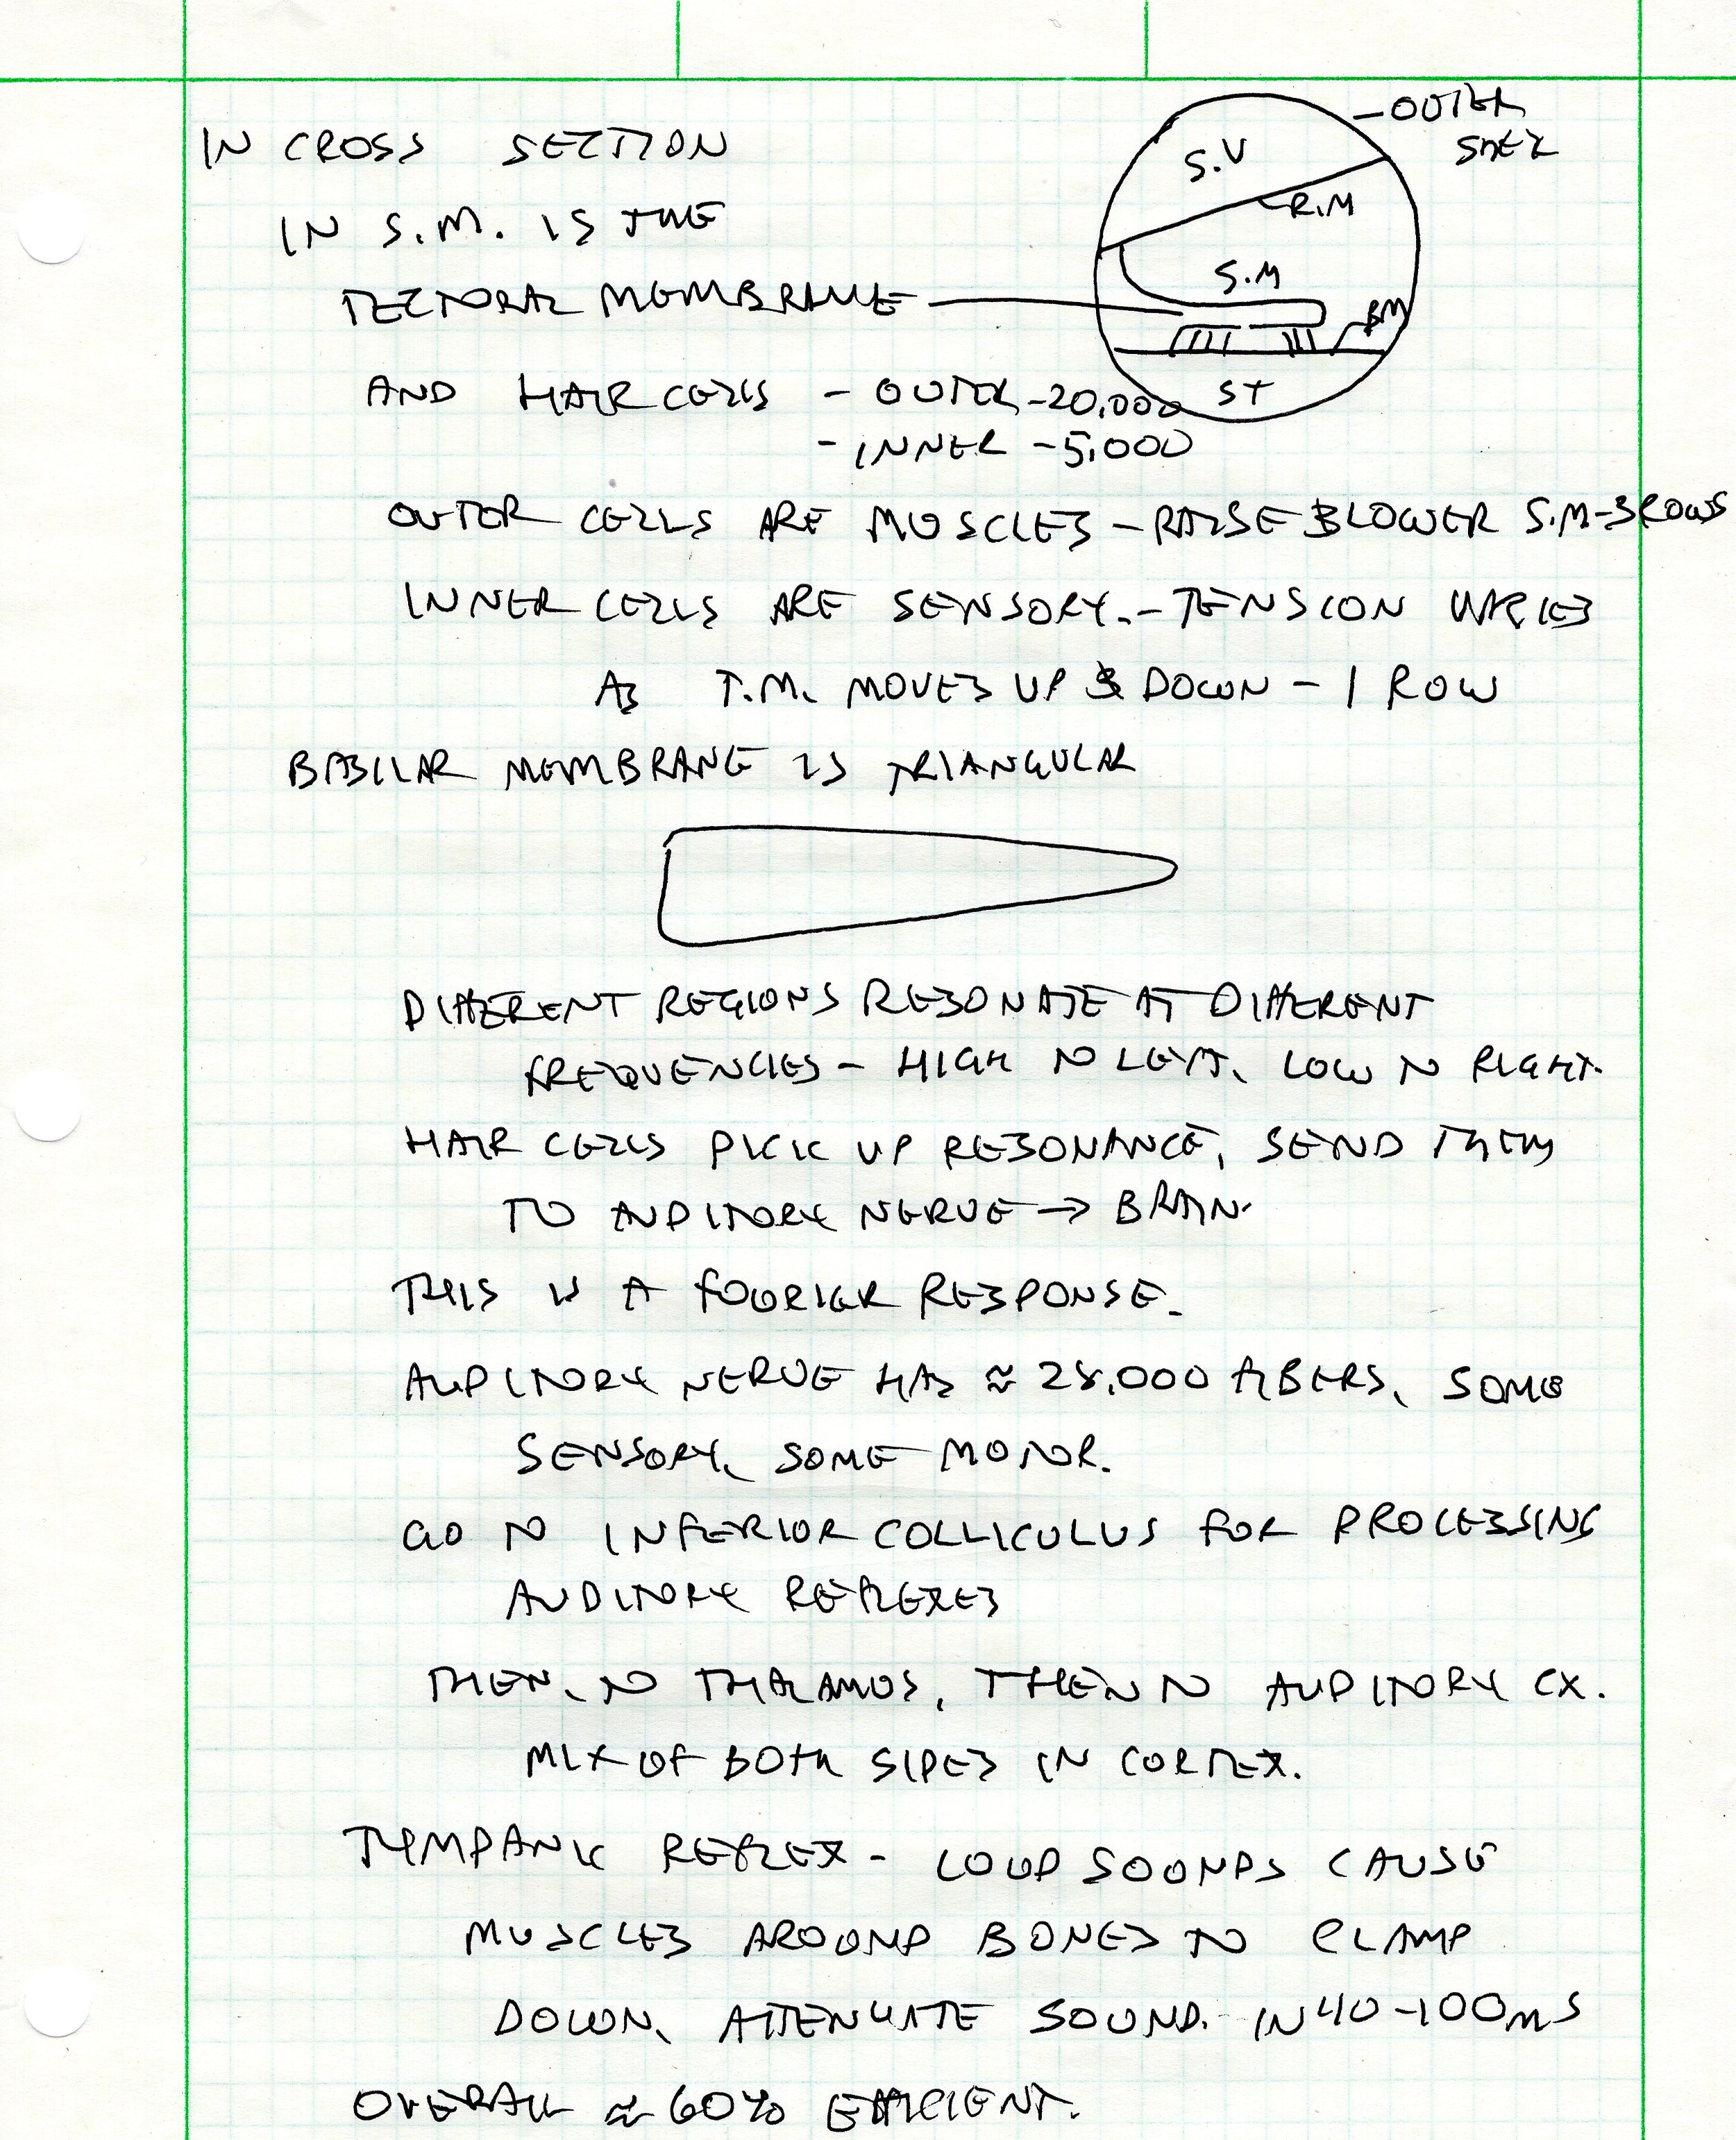 IN CROSS SECTION
— OUTER
SHELL
S.V
R.M
S.M
BM
ST
IN S.M. IS THE
TECTORAL MEMBRANE
AND HAIR CELLS - OUTER - 20,000
- INNER - 5,000
OUTER CELLS ARE MUSCLES - RAISE & LOWER S.M - 3 ROWS
INNER CELLS ARE SENSORY. - TENSION VARIES
AS T.M. MOVES UP & DOWN - 1 ROW
BASILAR MEMBRANE IS TRIANGULAR
DIFFERENT REGIONS RESONATE AT DIFFERENT
FREQUENCIES - HIGH TO LEFT, LOW TO RIGHT.
HAIR CELLS PICK UP RESONANCE, SEND THEM
TO AUDITORY NERVE → BRAIN.
THIS IS A FOURIER RESPONSE.
AUDITORY NERVE HAS ≈ 28,000 FIBERS, SOME
SENSORY, SOME MOTOR.
GO TO INFERIOR COLLICULUS FOR PROCESSING
AUDITORY REFLEXES
THEN, TO THALAMUS, THEN TO AUDITORY CX.
MIX OF BOTH SIDES IN CORTEX.
TYMPANIC REFLEX - LOUD SOUNDS CAUSE
MUSCLES AROUND BONES TO CLAMP
DOWN, ATTENUATE SOUND. IN 40-100 mS
OVERALL ≈ 60% EFFICIENT.